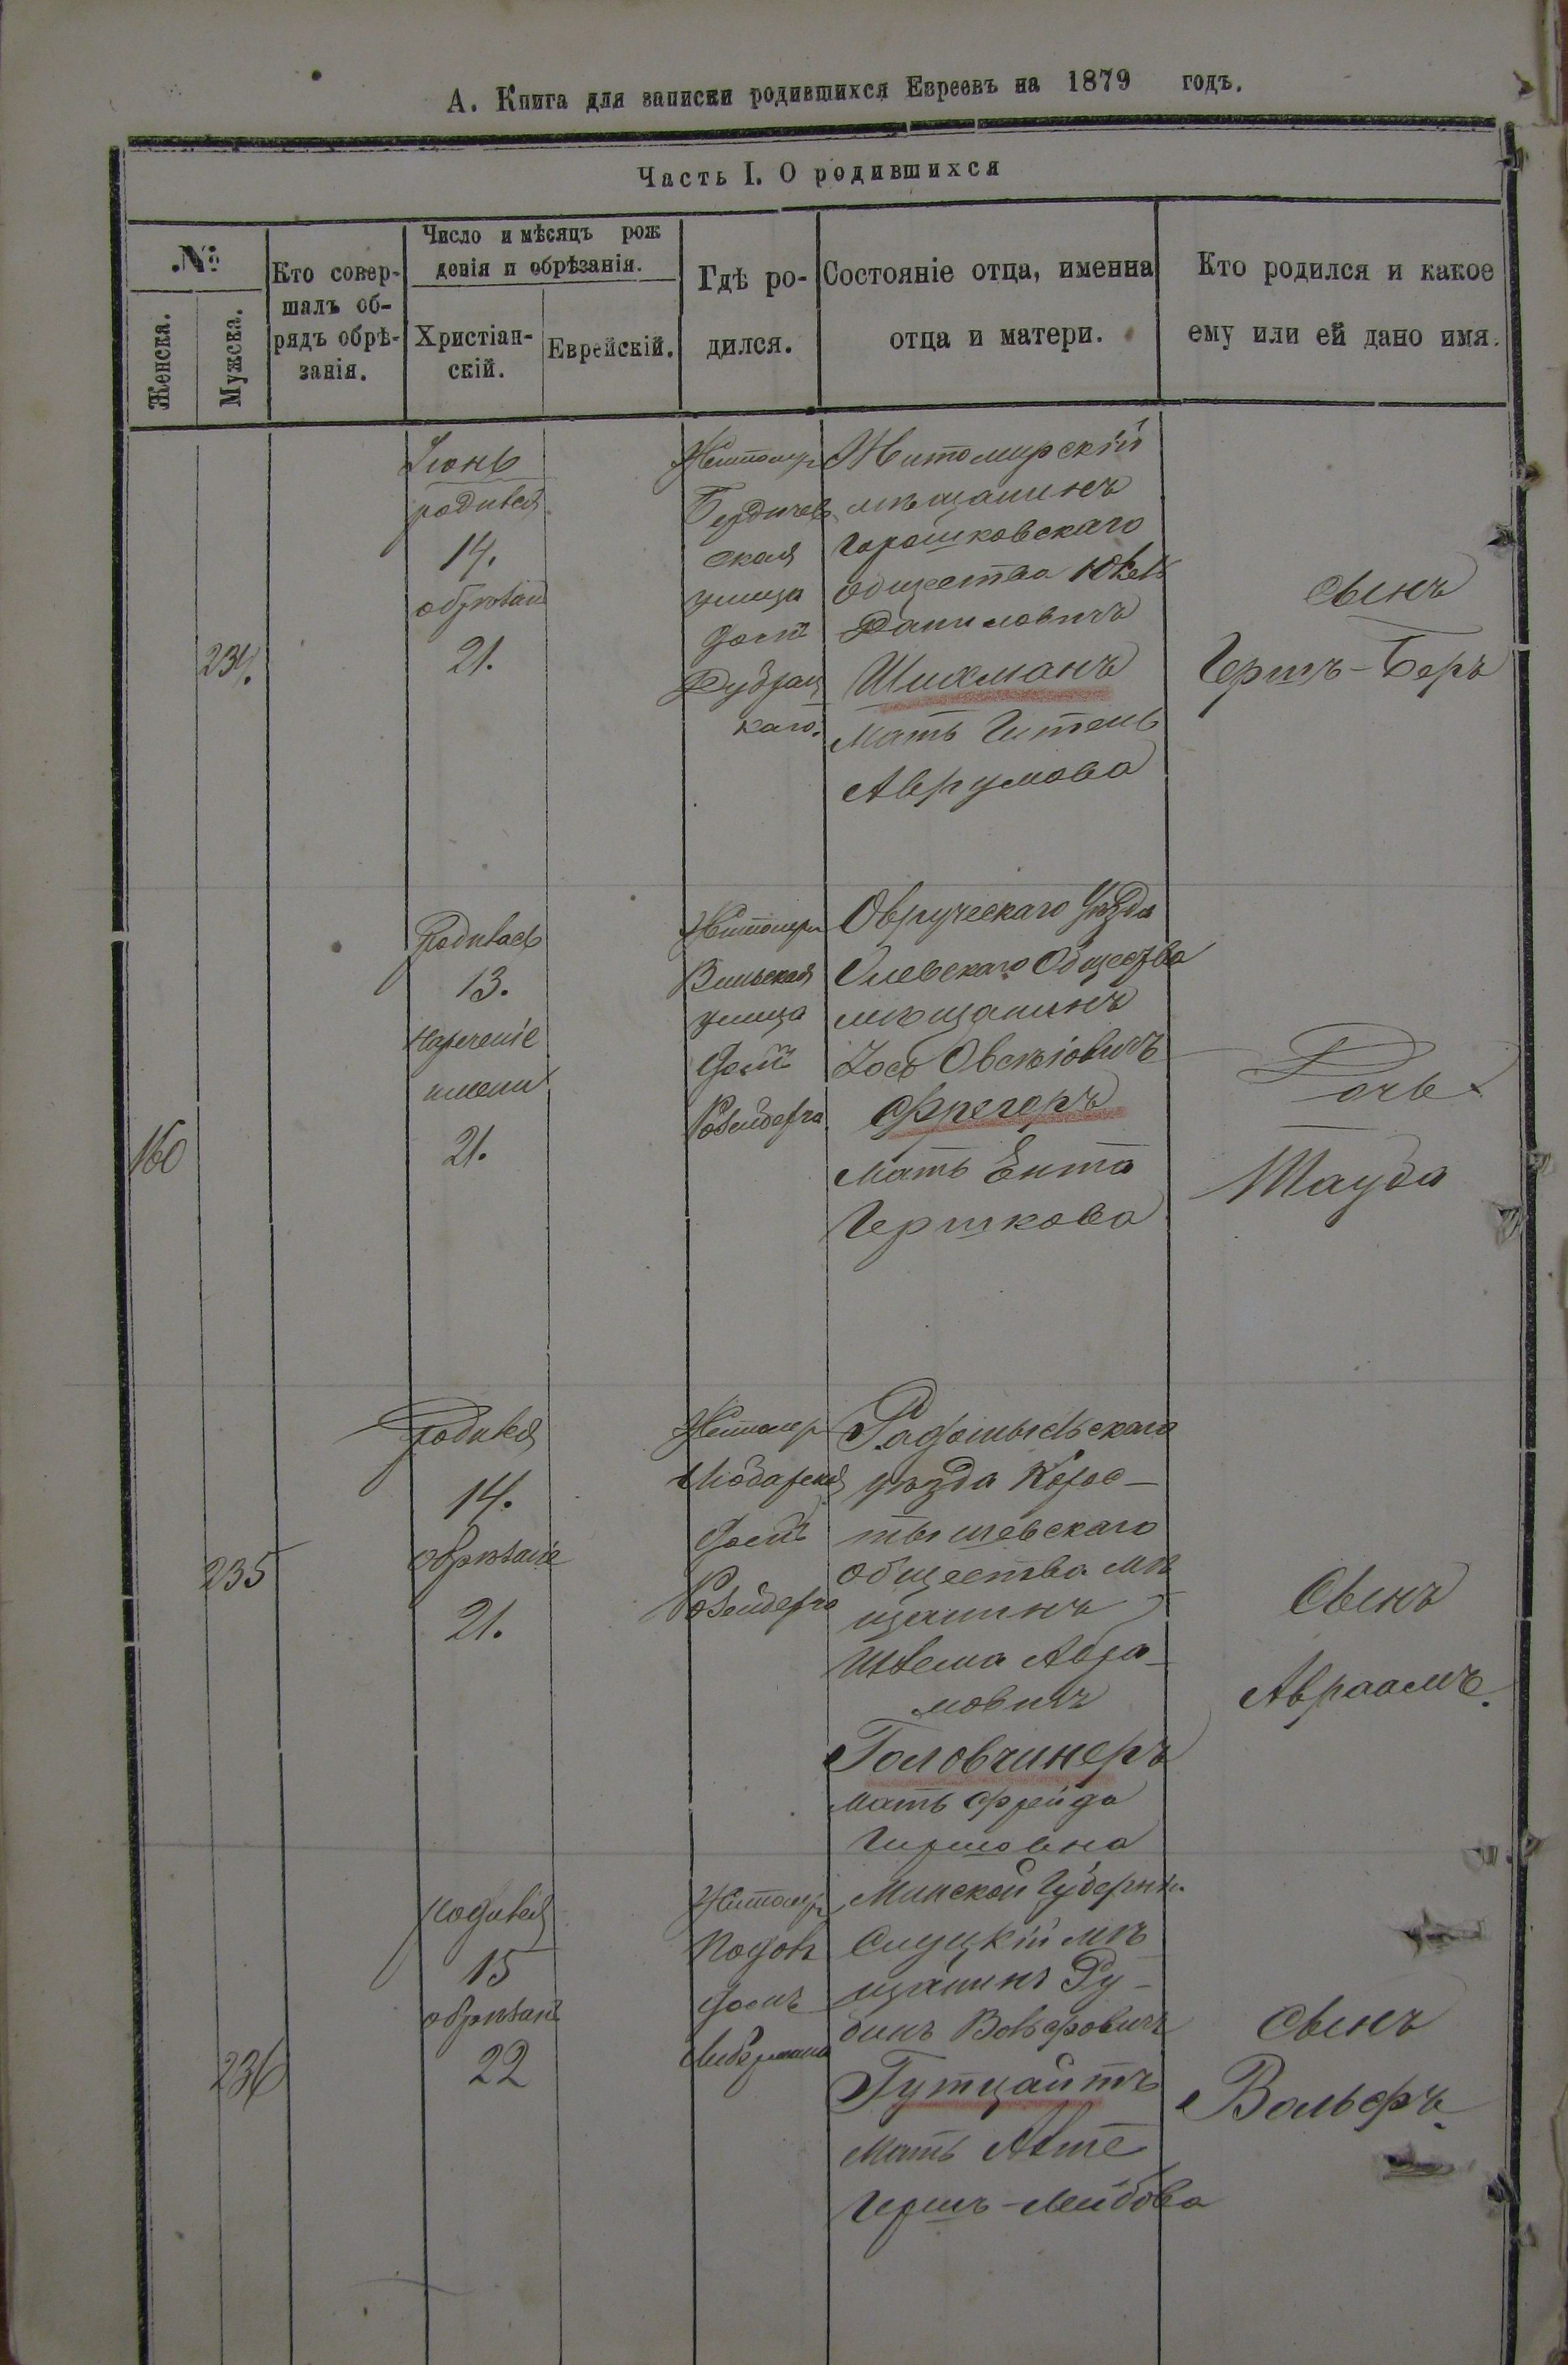 А. Книга для записки родившихся Евреевъ на 1879 годъ.
Часть I. О родившихся
№
Женска.
Мужска.
Кто совер-
шалъ об-
рядъ обрѣ-
занія.
Число и мѣсяцъ рож
денія и обрѣзанія.
Христіан-
скій.
Еврейскій.
Гдѣ ро-
дился.
Состояніе отца, именна
отца и матери.
Кто родился и какое
ему или ей дано имя.
234.
Іюнь
родился
14.
обрѣзані
21.
Житомир
Бердичев
ская
улица
домъ
каго.
Житомирскій
мѣщанинъ
Горошковскаго
общества
Даниловичъ
Шихманъ
мать Гитель
Аврумова
сынъ
Гершъ-Беръ
160
Родилась
13.
нареченіе
имени
21.
Житомиръ
Вильская
улица
домъ
Овруческаго Уѣзда
Олевскаго Общества
мѣщанинъ
Іось Овсѣіовичъ
Фрегеръ
мать Ента
Гершкова
Дочь
Тауба
235
родился
14.
обрѣзаніе
21.
Житомир
домъ
Радомысльскаго
уѣзда Корос-
тышевскаго
общества мѣ
щанинъ
Абра-
мовичъ
Головчинеръ
мать Фрейда
Гиршовна
Сынъ
Авраамъ.
236
родился
15
обрѣзані
22
Житомир
домъ
Либермана
Минской Губерніи
Слуцкій мѣ
щанинъ Ру-
бинъ Вольфовичъ
Гутцайтъ
мать
Гершъ-Лейбова
сынъ
Вольфъ.